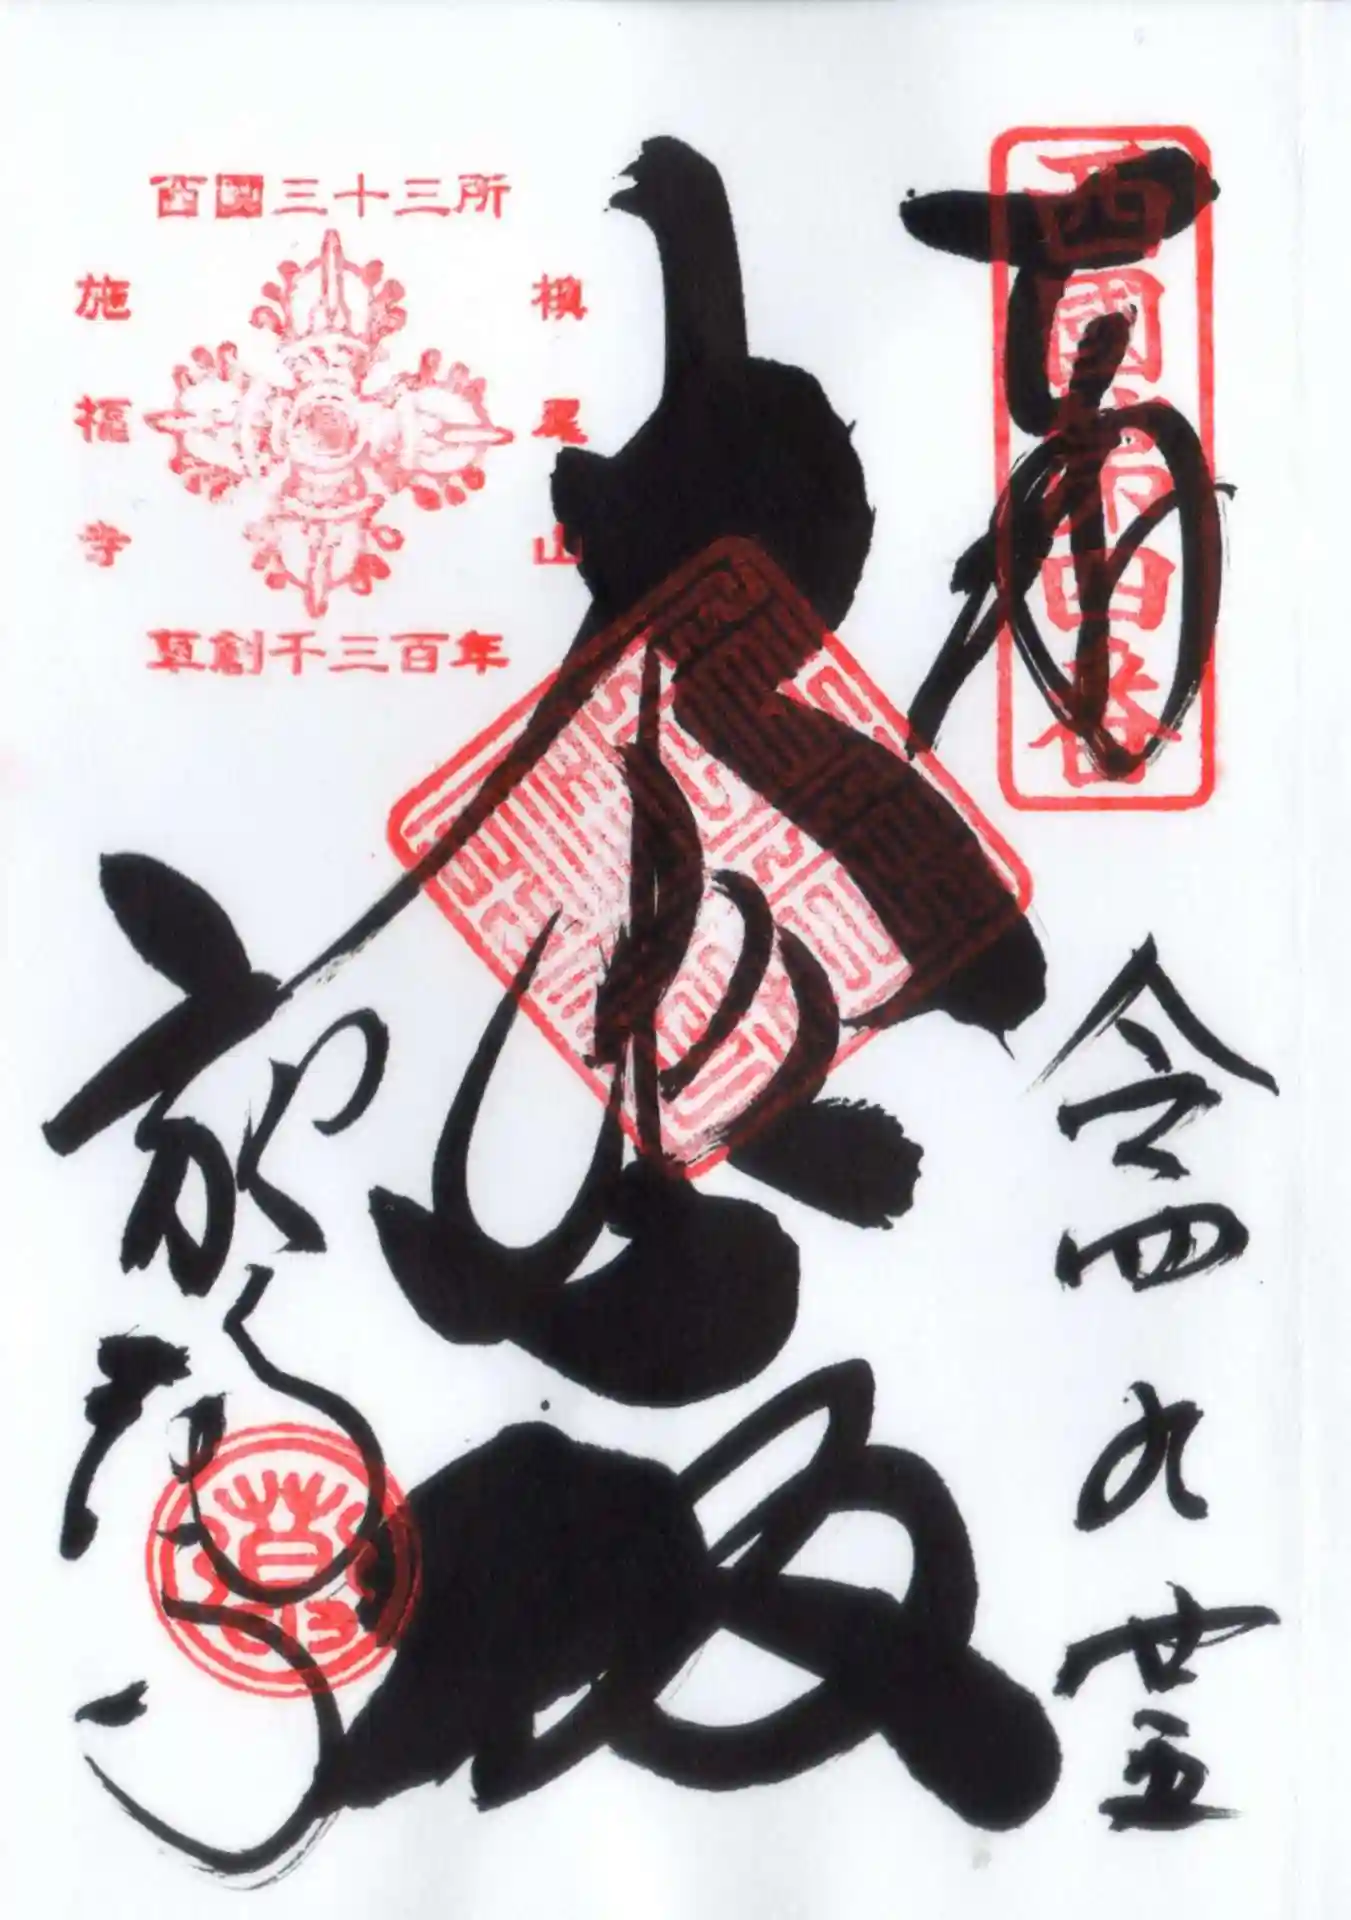 西國第四番
令四 九 廿五
大悲殿
施福寺
西國三十三所
槇尾山
施福寺
草創千三百年